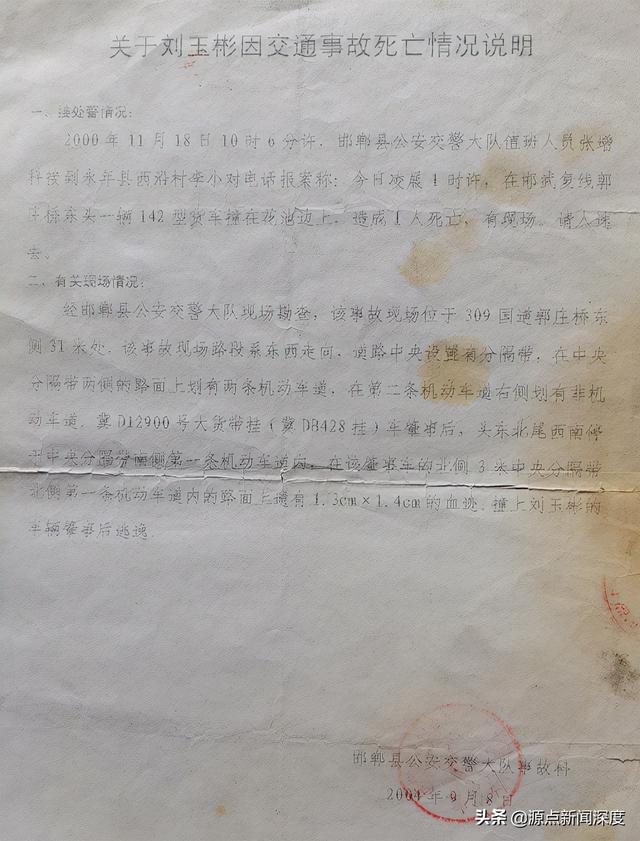 关于刘玉彬因交通事故死亡情况说明
一、接处警情况：
2000年11月18日10时6分许，邯郸县公安交警大队值班人员张增
科接到永年县西沿村李小对电话报案称：今日凌晨1时许，在邯武复线郭
庄桥东头一辆142型货车撞在花池边上，造成1人死亡，有现场。请人速
去。
二、有关现场情况：
经邯郸县公安交警大队现场勘查，该事故现场位于309国道郭庄桥东
侧31米处，该事故现场路段系东西走向，道路中央设置有分隔带，在中央
分隔带两侧的路面上划有两条机动车道，在第二条机动车道右侧划有非机
动车道，冀D12900号大货带挂（冀DB428挂）车肇事后，头东北尾西南停
于中央分隔带南侧第一条机动车道内，在该肇事车的北侧3米中央分隔带
北侧第一条机动车道内的路面上遗有1.3cm×1.4cm的血迹，撞上刘玉彬的
车辆肇事后逃逸。
邯郸县公安交警大队事故科
2004年9月8日
头条 @源点新闻深度